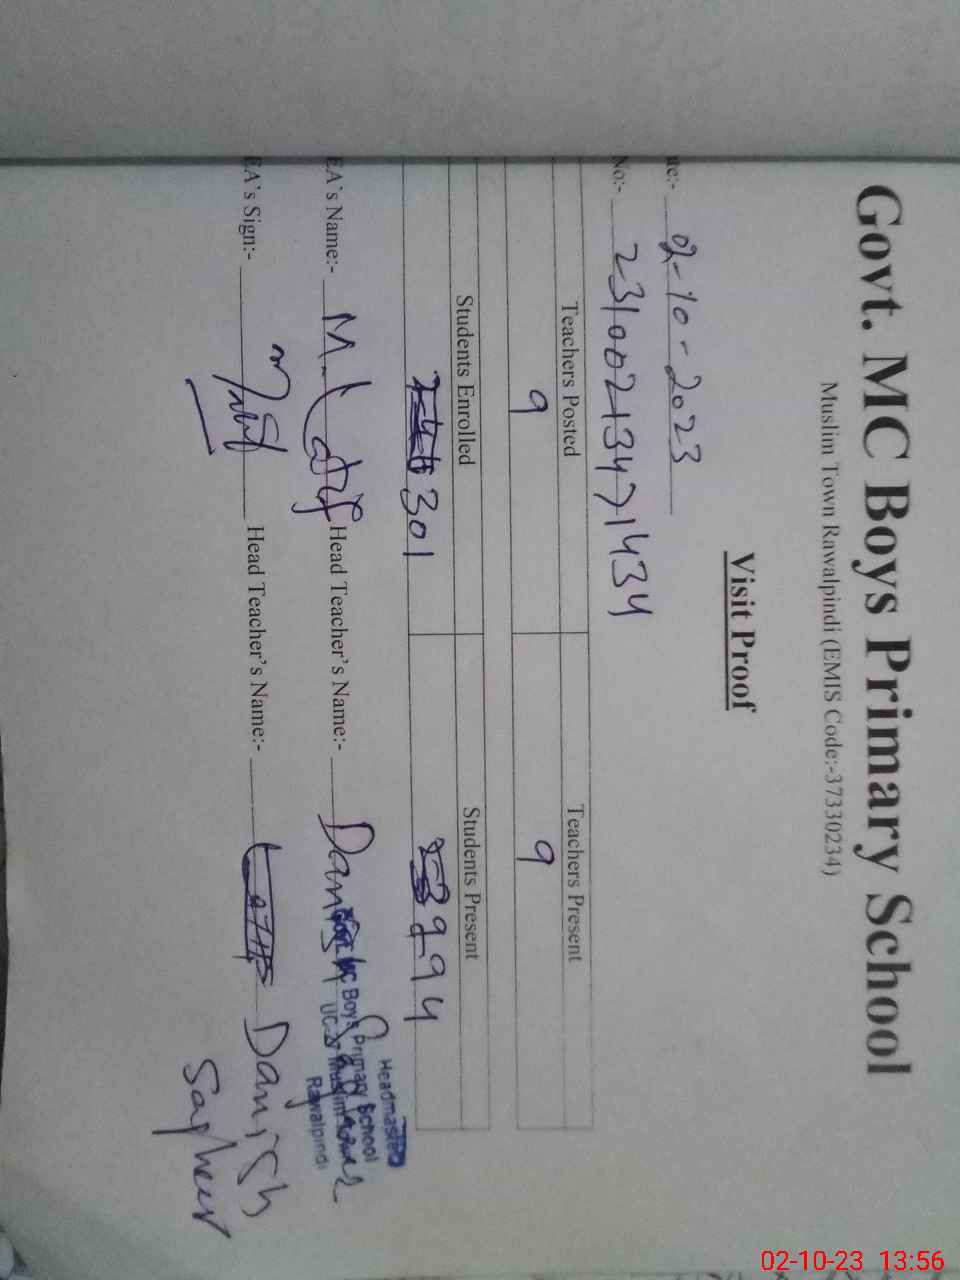 Govt. MC Boys Primary School
Muslim Town Rawalpindi (EMIS Code:-37330234)
Visit Proof
te:- 02-10-2023
No:- 23100213471434
Teachers Posted Teachers Present
9 9
Students Enrolled Students Present
301 294
EA's Name:- M. Latif Head Teacher's Name:- Danish Sagheer
Headmaster
Govt. MC Boys Primary School
UC-27 Muslim Town
Rawalpindi
EA's Sign:- Head Teacher's Name:- Danish
Sagheer
02-10-23 13:56